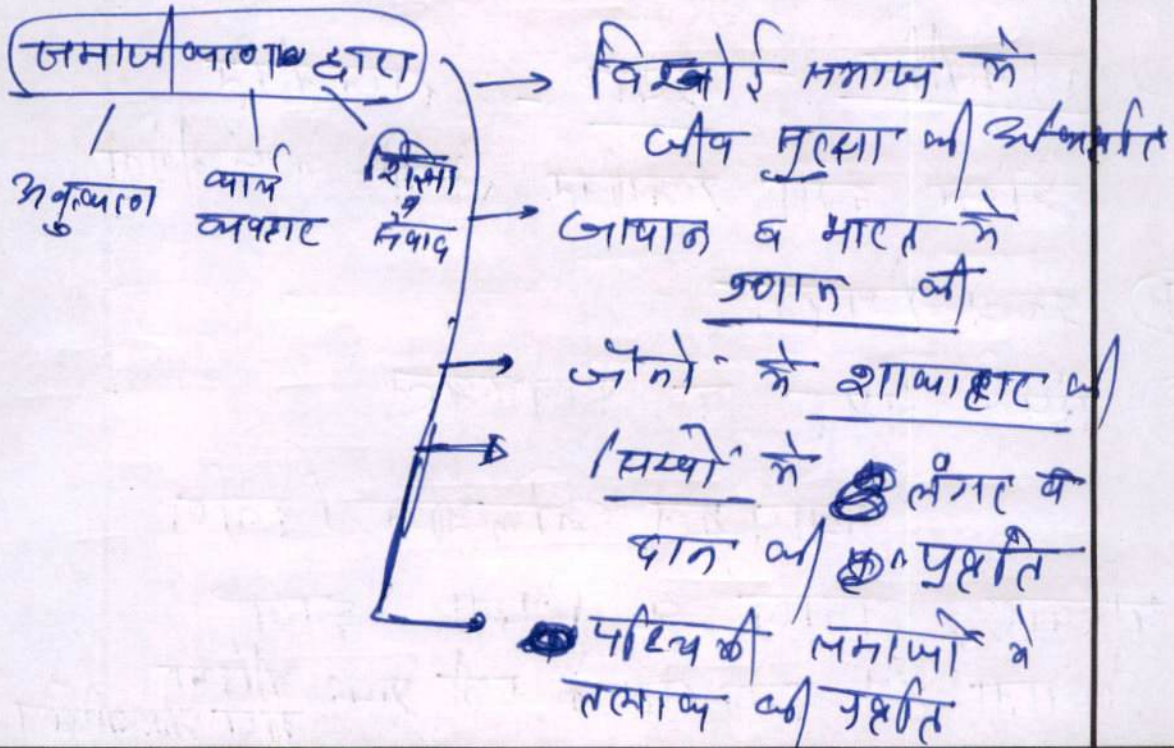 समाजीकरण द्वारा
अनुकरण
कार्य व्यवहार
शिक्षा, संवाद
→ विश्नोई समाज में
जीव सुरक्षा की अभिवृत्ति
→ जापान व भारत में
की
→ जैनों में शाकाहार की
→ सिक्खों में लंगर व
दान की प्रवृत्ति
→ पश्चिमी समाजों में
तलाक की प्रवृत्ति